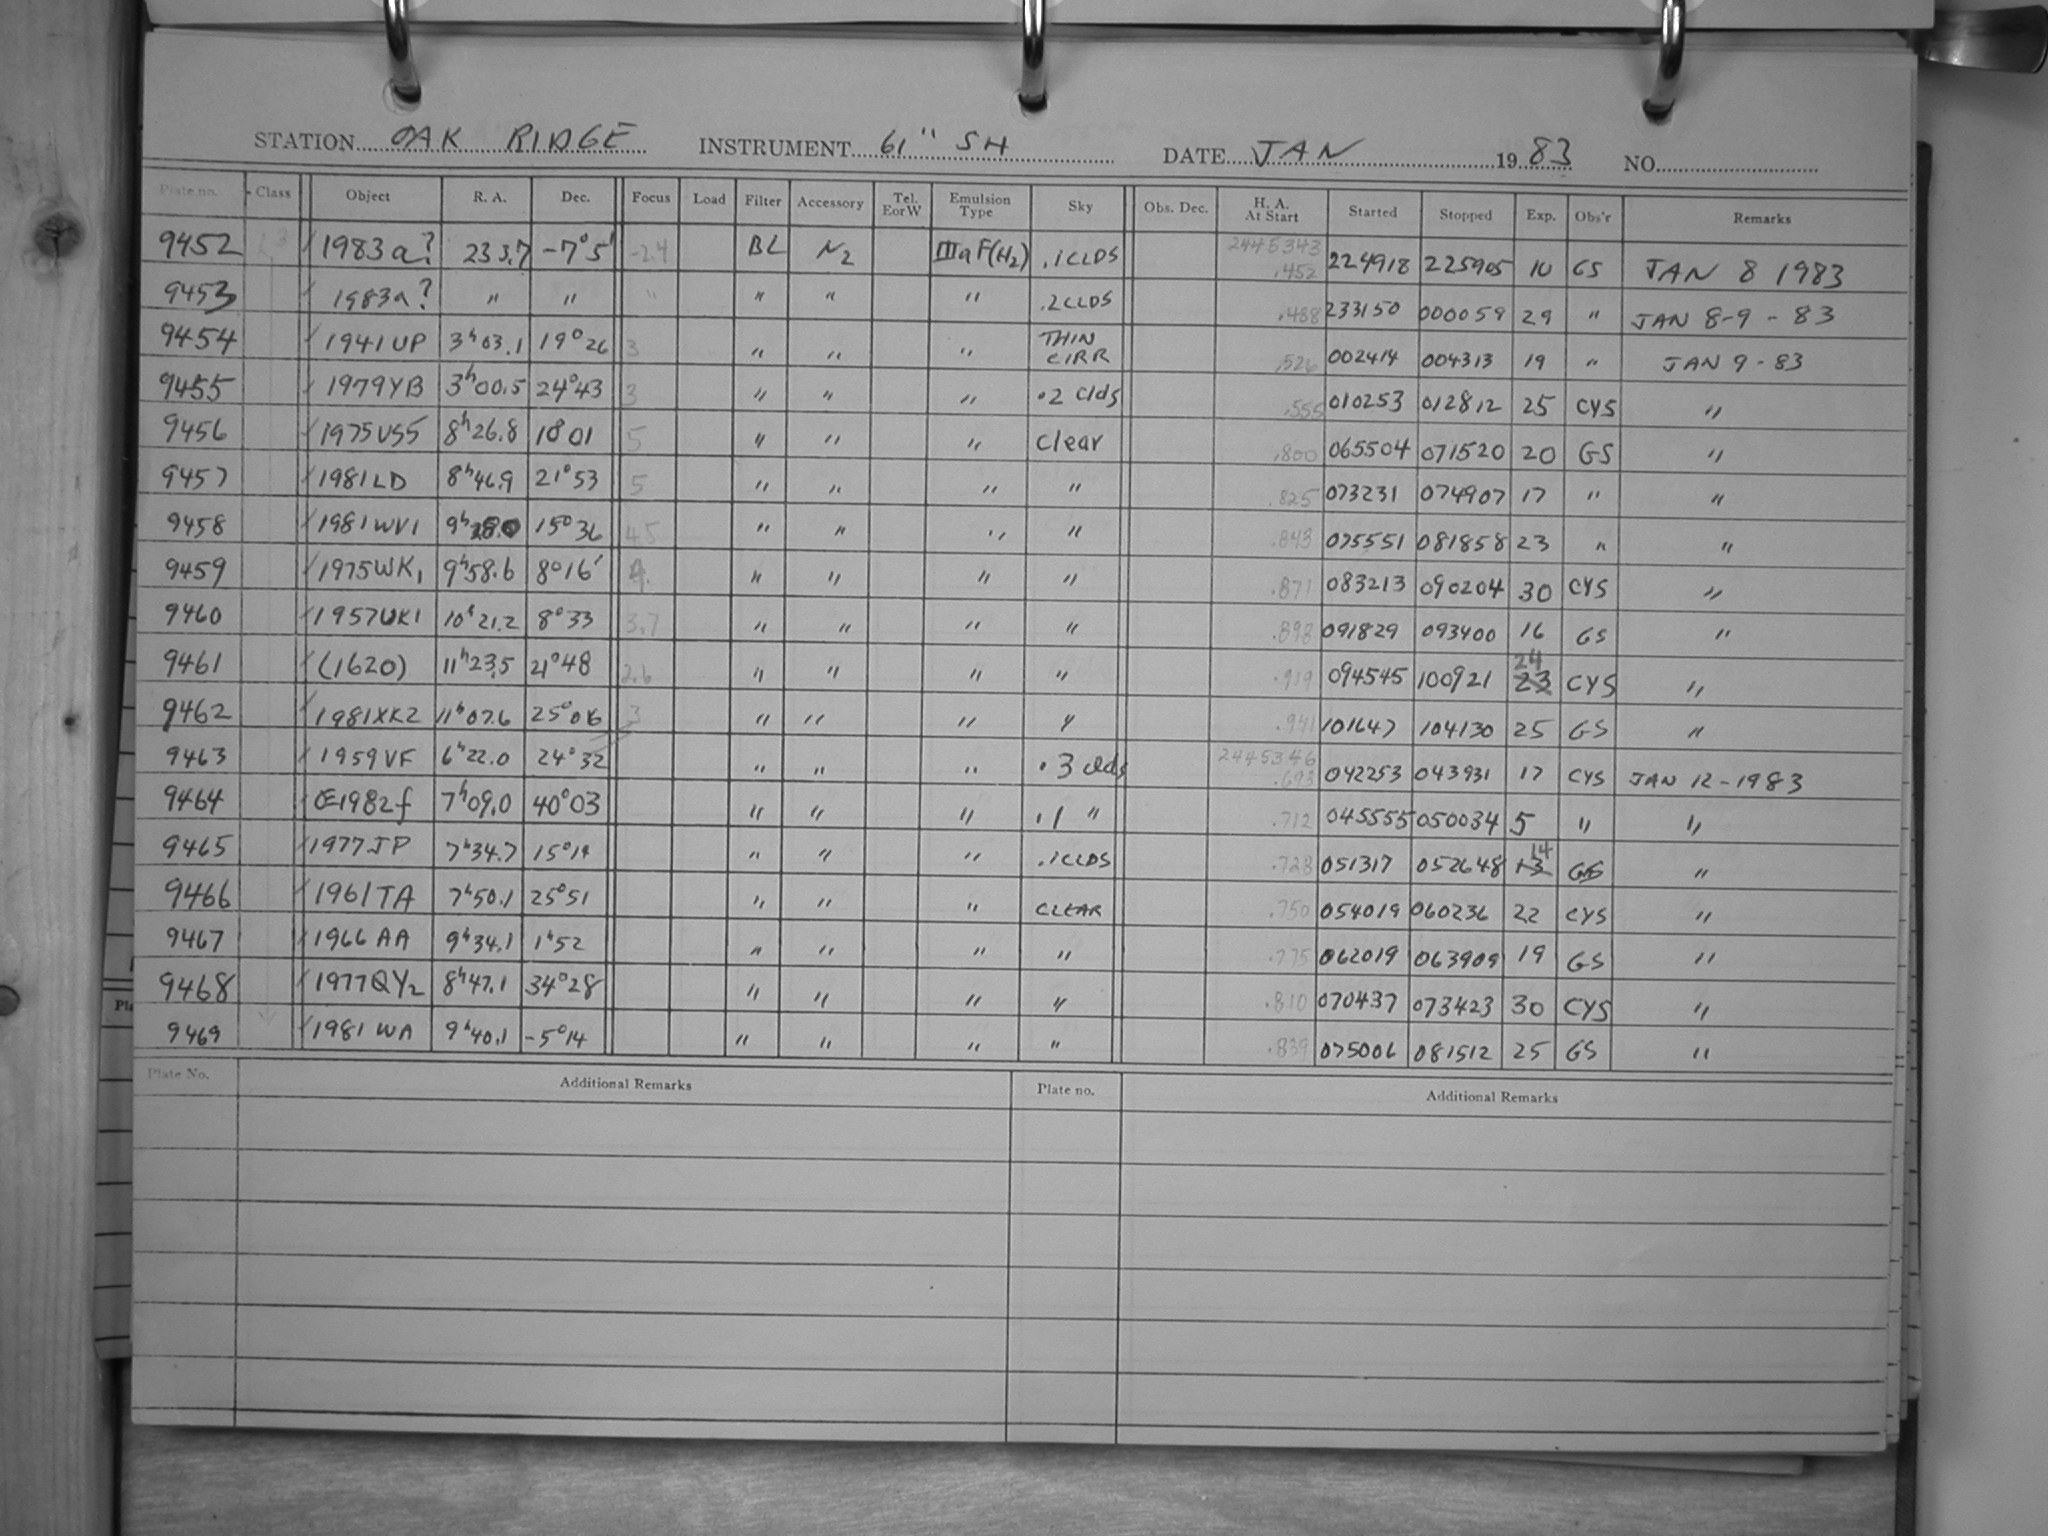 STATION OAK RIDGE INSTRUMENT 61" SH DATE JAN 1983 NO.
Plate no. Class Object R. A. Dec. Focus Load Filter Accessory Tel. EorW Emulsion Type Sky Obs. Dec. H. A. At Start Started Stopped Exp. Obs'r Remarks
9452 1983a? 23 3.7 -7°5' -2.4 BL N2 IIIaF(H2) .1CLDS 2445343 .452 224918 225905 10 GS JAN 8 1983
9453 1983a? " " " " " " .2CLDS .488 233150 000059 29 " JAN 8-9-83
9454 1941UP 3h03.1 19°26 3 " " " THIN CIRR .526 002414 004313 19 " JAN 9-83
9455 1979YB 3h00.5 24°43 3 " " " .2 clds .555 010253 012812 25 CYS "
9456 1975US5 8h26.8 18 01 5 " " " clear .800 065504 071520 20 GS "
9457 1981LD 8h46.9 21°53 5 " " " " .825 073231 074907 17 " "
9458 1981WV1 9h 15°36 45 " " " " .843 075551 081858 23 " "
9459 1975WK1 9h58.6 8°16' 4. " " " " .871 083213 090204 30 CYS "
9460 1957UK1 10h21.2 8°33 3.7 " " " " .898 091829 093400 16 GS "
9461 (1620) 11h23.5 21°48 2.6 " " " " .919 094545 100921 24 23 CYS "
9462 1981XK2 11h07.6 25°06 3 " " " " .941 101647 104130 25 GS "
9463 1959VF 6h22.0 24°32 " " " .3 clds 2445346 .693 042253 043931 17 CYS JAN 12-1983
9464 1982f 7h09.0 40°03 " " " .1 " .712 045555 050034 5 " "
9465 1977JP 7h34.7 15°19 " " " .1CLDS .728 051317 052648 14 13 GS "
9466 1961TA 7h50.1 25°51 " " " CLEAR .750 054019 060236 22 CYS "
9467 1966AA 9h34.1 1h52 " " " " .775 062019 063909 19 GS "
9468 1977QY2 8h47.1 34°28 " " " " .810 070437 073423 30 CYS "
9469 1981 WA 9h40.1 -5°14 " " " " .839 075006 081512 25 GS "
Plate No. Additional Remarks Plate no. Additional Remarks